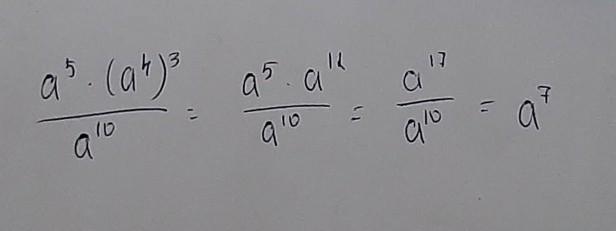 \frac{a^5 \cdot (a^4)^3}{a^{10}} = \frac{a^5 \cdot a^{12}}{a^{10}} = \frac{a^{17}}{a^{10}} = a^7